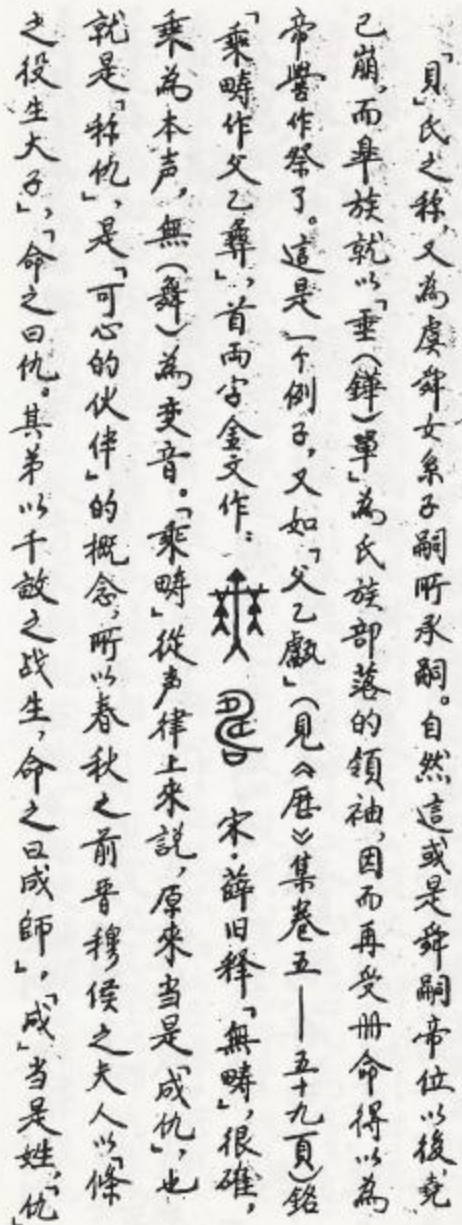 「貝」氏之称，又為虞舜女系子嗣所承嗣。自然，這或是舜嗣帝位以後，堯
已崩，而皋族就以「垂（鏵）單」為氏族部落的領袖，因而再受册命得以為
帝嚳作祭了。這是一个例子，又如「父乙甗」（見《歷》集卷五——五十九頁）銘
「乘畴作父乙彝」，首兩字金文作： 宋·薛旧释「無畴」，很確，
乘為本声，無（舞）為变音。「乘畴」從声律上來説，原來当是「成仇」，也
就是「称仇」，是「可心的伙伴」的概念，所以春秋之前晋穆侯之夫人以「條
之役生大子」，「命之曰仇。其弟以千畝之战生，命之曰成師」，「成」当是姓，「仇」